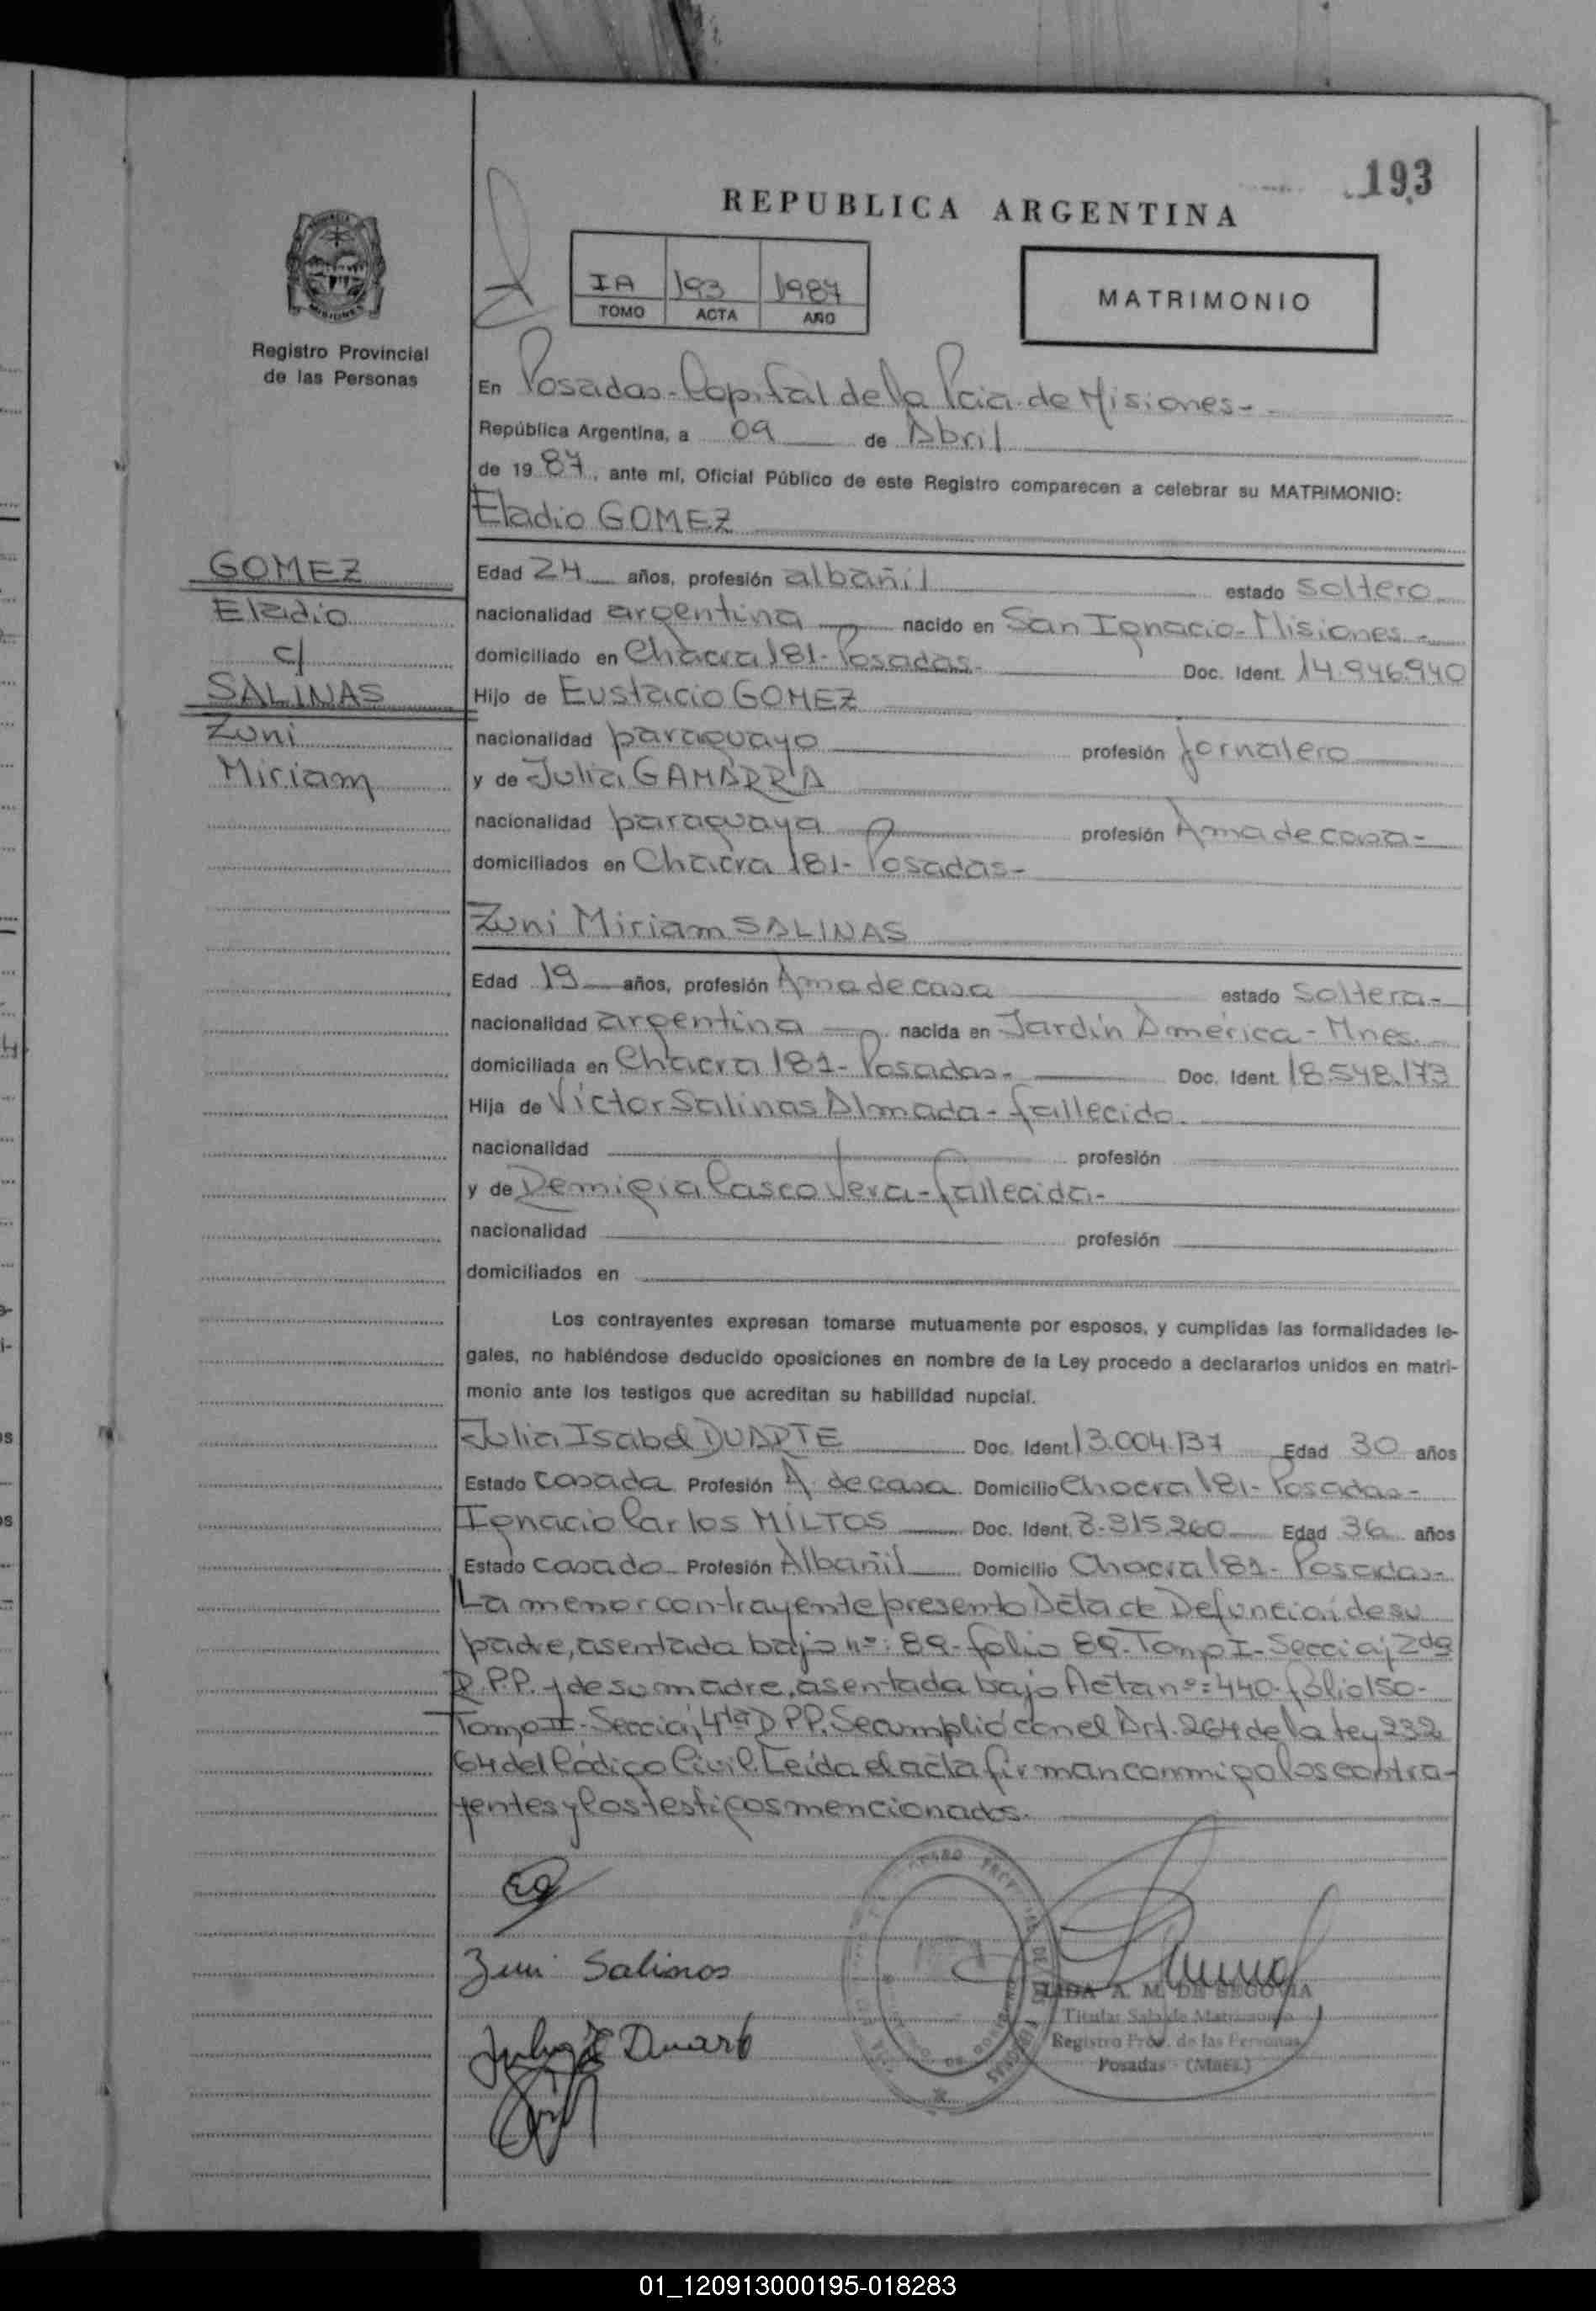 193
REPUBLICA ARGENTINA
IA 193 1987
TOMO ACTA AÑO
MATRIMONIO
MISIONES
Registro Provincial
de las Personas
En Posadas-Capital de la Pcia. de Misiones-
República Argentina, a 09 de Abril
de 1987, ante mí, Oficial Público de este Registro comparecen a celebrar su MATRIMONIO:
Eladio GOMEZ
GOMEZ
Eladio
c/
SALINAS
Zuni
Miriam
Edad 24 años, profesión albañil estado soltero
nacionalidad argentina nacido en San Ignacio-Misiones-
domiciliado en Chacra 181-Posadas- Doc. Ident. 14.946.940
Hijo de Eustacio GOMEZ
nacionalidad paraguayo profesión Jornalero
y de Julia GAMARRA
nacionalidad paraguaya profesión Ama de casa-
domiciliados en Chacra 181-Posadas-
Zuni Miriam SALINAS
Edad 19 años, profesión Ama de casa estado soltera-
nacionalidad argentina nacida en Jardín América-Mnes.
domiciliada en Chacra 181-Posadas- Doc. Ident. 18.548.173
Hija de Victor Salinas Almada-fallecido
nacionalidad profesión
y de Demigia Casco Vera-fallecida-
nacionalidad profesión
domiciliados en
Los contrayentes expresan tomarse mutuamente por esposos, y cumplidas las formalidades le-
gales, no habiéndose deducido oposiciones en nombre de la Ley procedo a declararlos unidos en matri-
monio ante los testigos que acreditan su habilidad nupcial.
Julia Isabel DUARTE Doc. Ident. 13.004.137 Edad 30 años
Estado casada Profesión A. de casa Domicilio Chacra 181-Posadas-
Ignacio Carlos MILTOS Doc. Ident. 8.315.260 Edad 36 años
Estado casado Profesión Albañil Domicilio Chacra 181-Posadas-
La menor contrayente presento Acta de Defunción de su
padre, asentada bajo nº: 89-folio 89-Tomo I-Sección 2da
D.P.P. y de su madre, asentada bajo Acta nº: 440-folio 150-
Tomo II-Sección 4ta D.PP. Se cumplió con el Art. 264 de la Ley 232
64 del Código Civil. Leída el acta firman conmigo los contra-
yentes y los testigos mencionados.
Zuni Salinas
Julia I Duarte
LIDA A. M. DE SEGOVIA
Titular Sala de Matrimonio
Registro Prov. de las Personas
Posadas - (Mnes.)
01_120913000195-018283